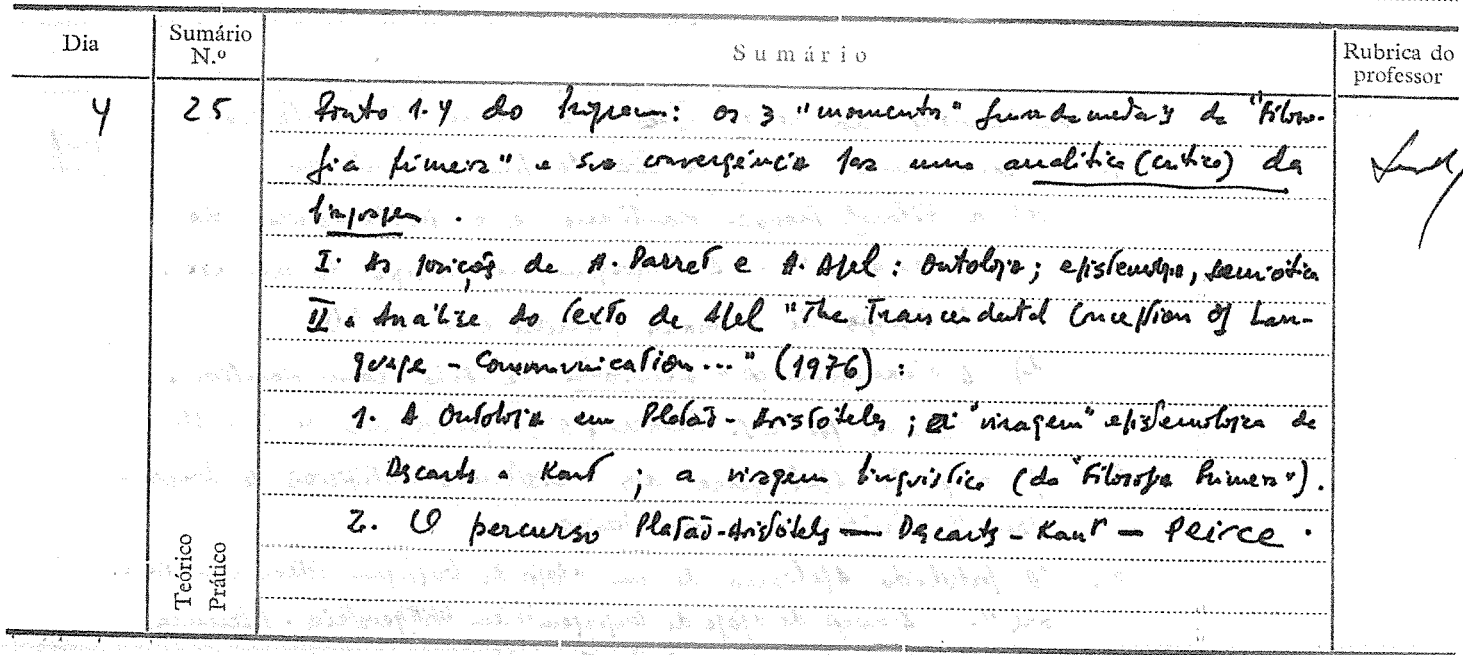 Dia
Sumário N.º
Sumário
Rubrica do professor
4
25
Ponto 1.4 do Program: os 3 "momentos" fundamentais da "Filoso-
fia primeira" e sua convergência para uma analítica (crítica) da
linguagem.
I. As posições de H. Parret e A. Apel: Ontologia; epistemologia, semiótica
II. Análise do texto de Apel "The Transcendental Conception of Lan-
guage - Communication..." (1976):
1. A Ontologia em Platão-Aristóteles; a "viragem" epistemologica de
Descartes a Kant; a viragem linguística (da "Filosofia Primeira").
2. O percurso Platão-Aristóteles — Descartes - Kant — Peirce.
Teórico
Prático